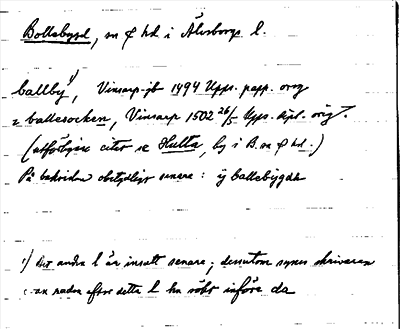 Bollebygd, sn o hd i Älvsborgs l.
ballby¹⁾, Vinsarp-jb 1494 Upps. papp. orig
i ballesocken, Vinsarp 1502 26/5 Upps. kpl. orig.
(utförligare citer se Hulta, by i B. sn o hd.)
På baksidan obetydligt senare: ij ballebygdh
¹⁾ Det andra l är insatt senare; dessutom synes skrivaren
ha raden efter detta l ha infört da